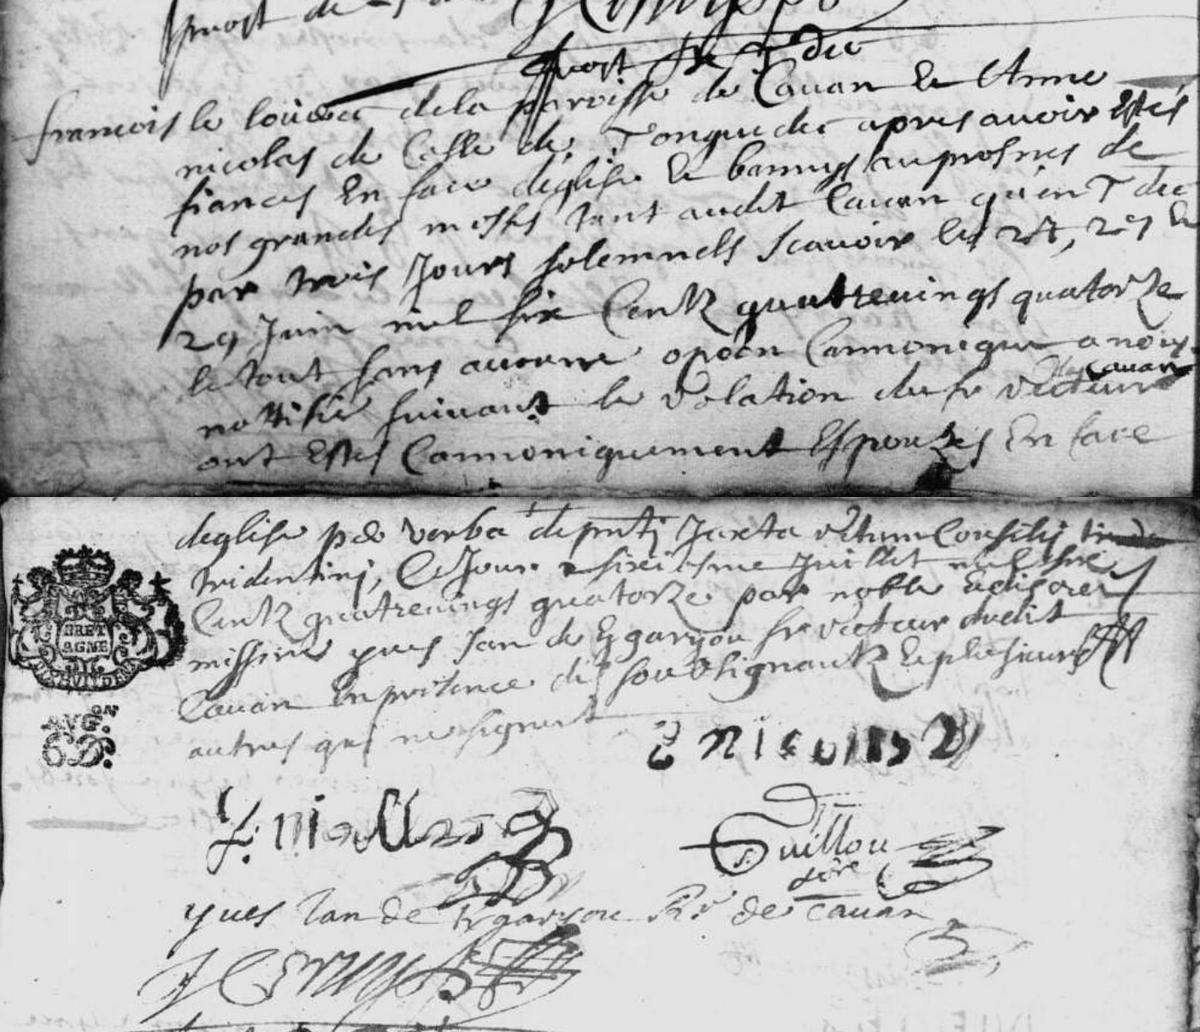 prost de
prost de T dec
francois le de la paroisse de Cauan et Anne
nicolas de Celle de Tonquedec apres auoir Estés
fiances En face deglise et bannys au prosnes de
nos grandes messes tant audit Cauan qu'en T dec
par trois Jours solemnels scauoir les 24, 27 et
29 Juin mil six Centz quatreuingt quatorze
le tout sans aucune opõon Cannonique a nous
nottifiée suiuant la relation du sr recteur de Cauan
ont Estes Cannoniquement Espouzes En face
deglise per verba de pnti Juxta ritum Consilij
tridentini, Ce Jour sixiesme Juillet mil six
Centz quatreuingt quatorze par noble et discret
missire yues Jan de sr recteur dudit
Cauan En presence des soubsignantz et plusieurs
autres qui ne signent
BRET
AGNE
nicolas
Guillou
yues Jan de Rr de Cauan